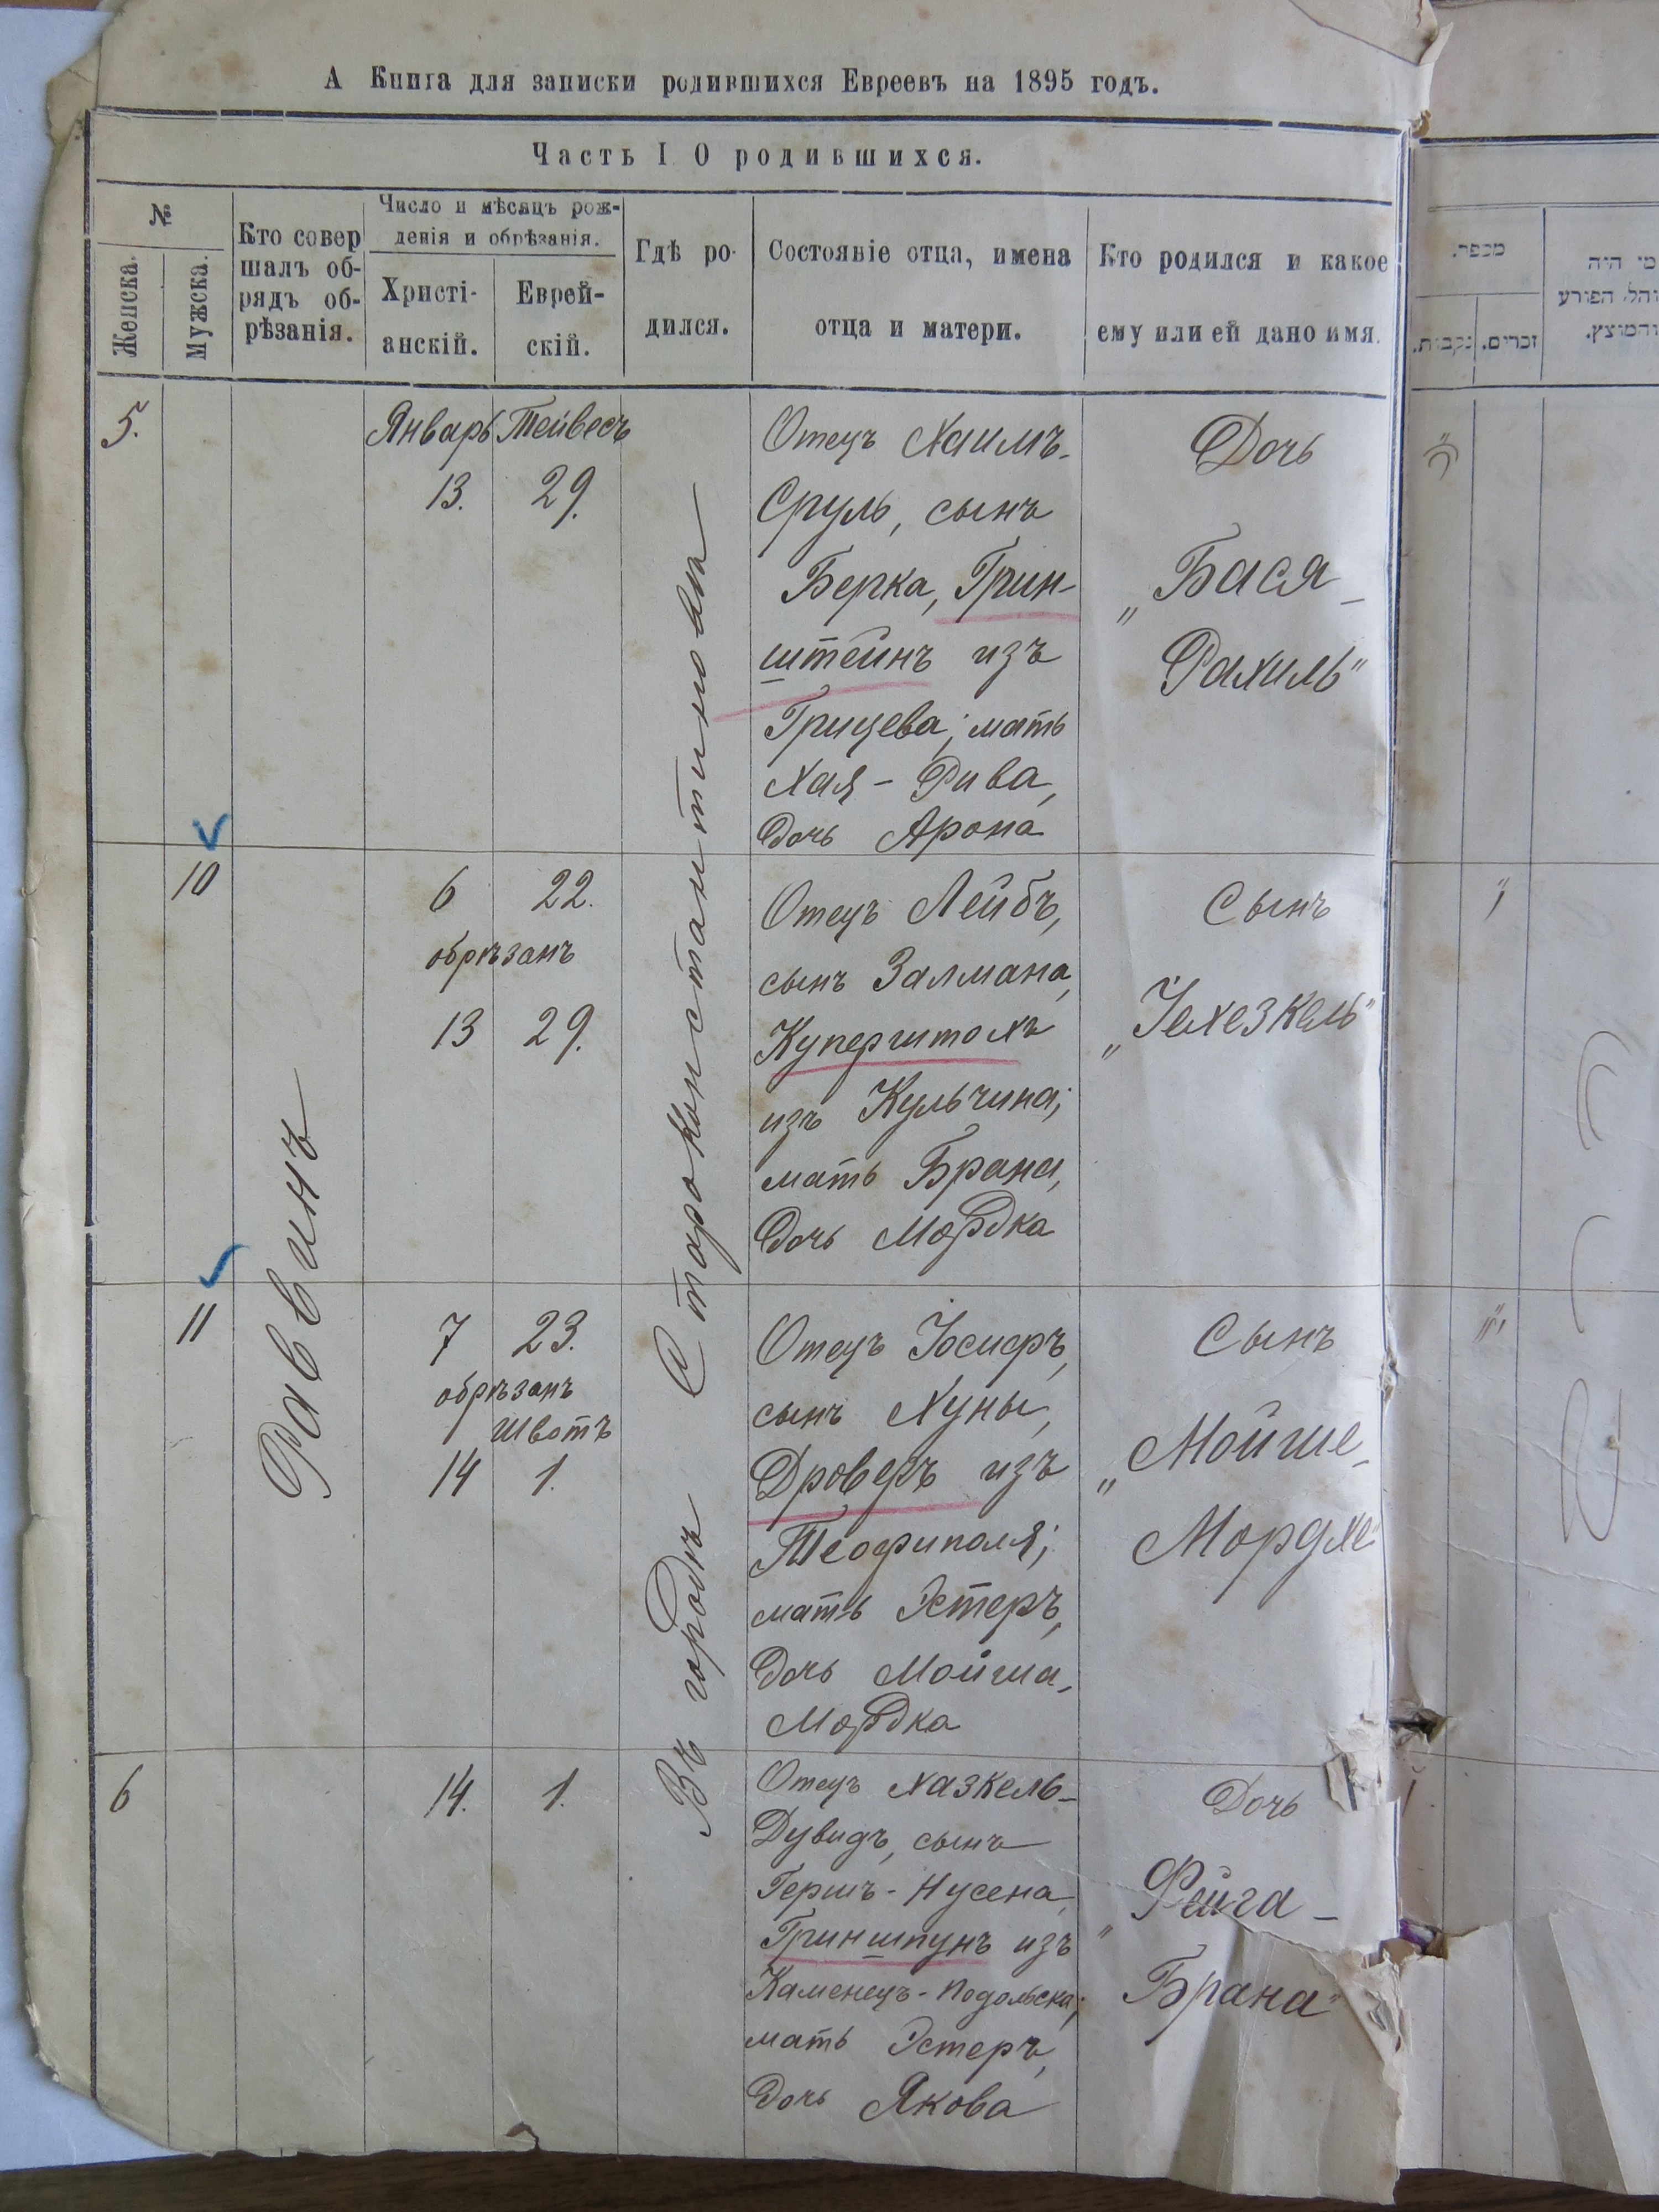 А Книга для записки родившихся Евреевъ на 1895 годъ.
Часть I О родившихся.
№
Женска.
Мужска.
Кто совер
шалъ об-
рядъ об-
рѣзанія.
Число и мѣсяцъ рож-
денія и обрѣзанія.
Христі-
анскій.
Еврей-
скій.
Гдѣ ро-
дился.
Состояніе отца, имена
отца и матери.
Кто родился и какое
ему или ей дано имя.
מספר.
נקבות.
זכרים.
מי היה
המוהל הפורע
והמוצץ.
Раввинъ
Въ городѣ Староконстантиновѣ
5.
Январь Тейвесъ
13. 29.
Отецъ Хаимъ-
Сруль, сынъ
Берка, Грин-
штейнъ изъ
Грицева; мать
Хая - Рива,
дочь Арона
Дочь
„Бася-
Рахиль"
10
6 22.
обрѣзанъ
13 29.
Отецъ Лейбъ,
сынъ Залмана,
Куперштохъ
изъ Кульчина;
мать Брана,
дочь Мордка
Сынъ
„Іехезкель"
11
7 23.
обрѣзанъ
Швотъ
14 1.
Отецъ Іосифъ,
сынъ Хуны,
Дроверъ изъ
Теофиполя;
мать Эстеръ,
дочь Мойша-
Мордка
Сынъ
„Мойше-
Мордхе"
6
14. 1.
Отецъ Хазкель-
Дувидъ, сынъ
Гершъ-Нусена,
Гриншпунъ изъ
Каменецъ-Подольска;
мать Эстеръ,
дочь Якова
Дочь
„Фейга-
Брана"